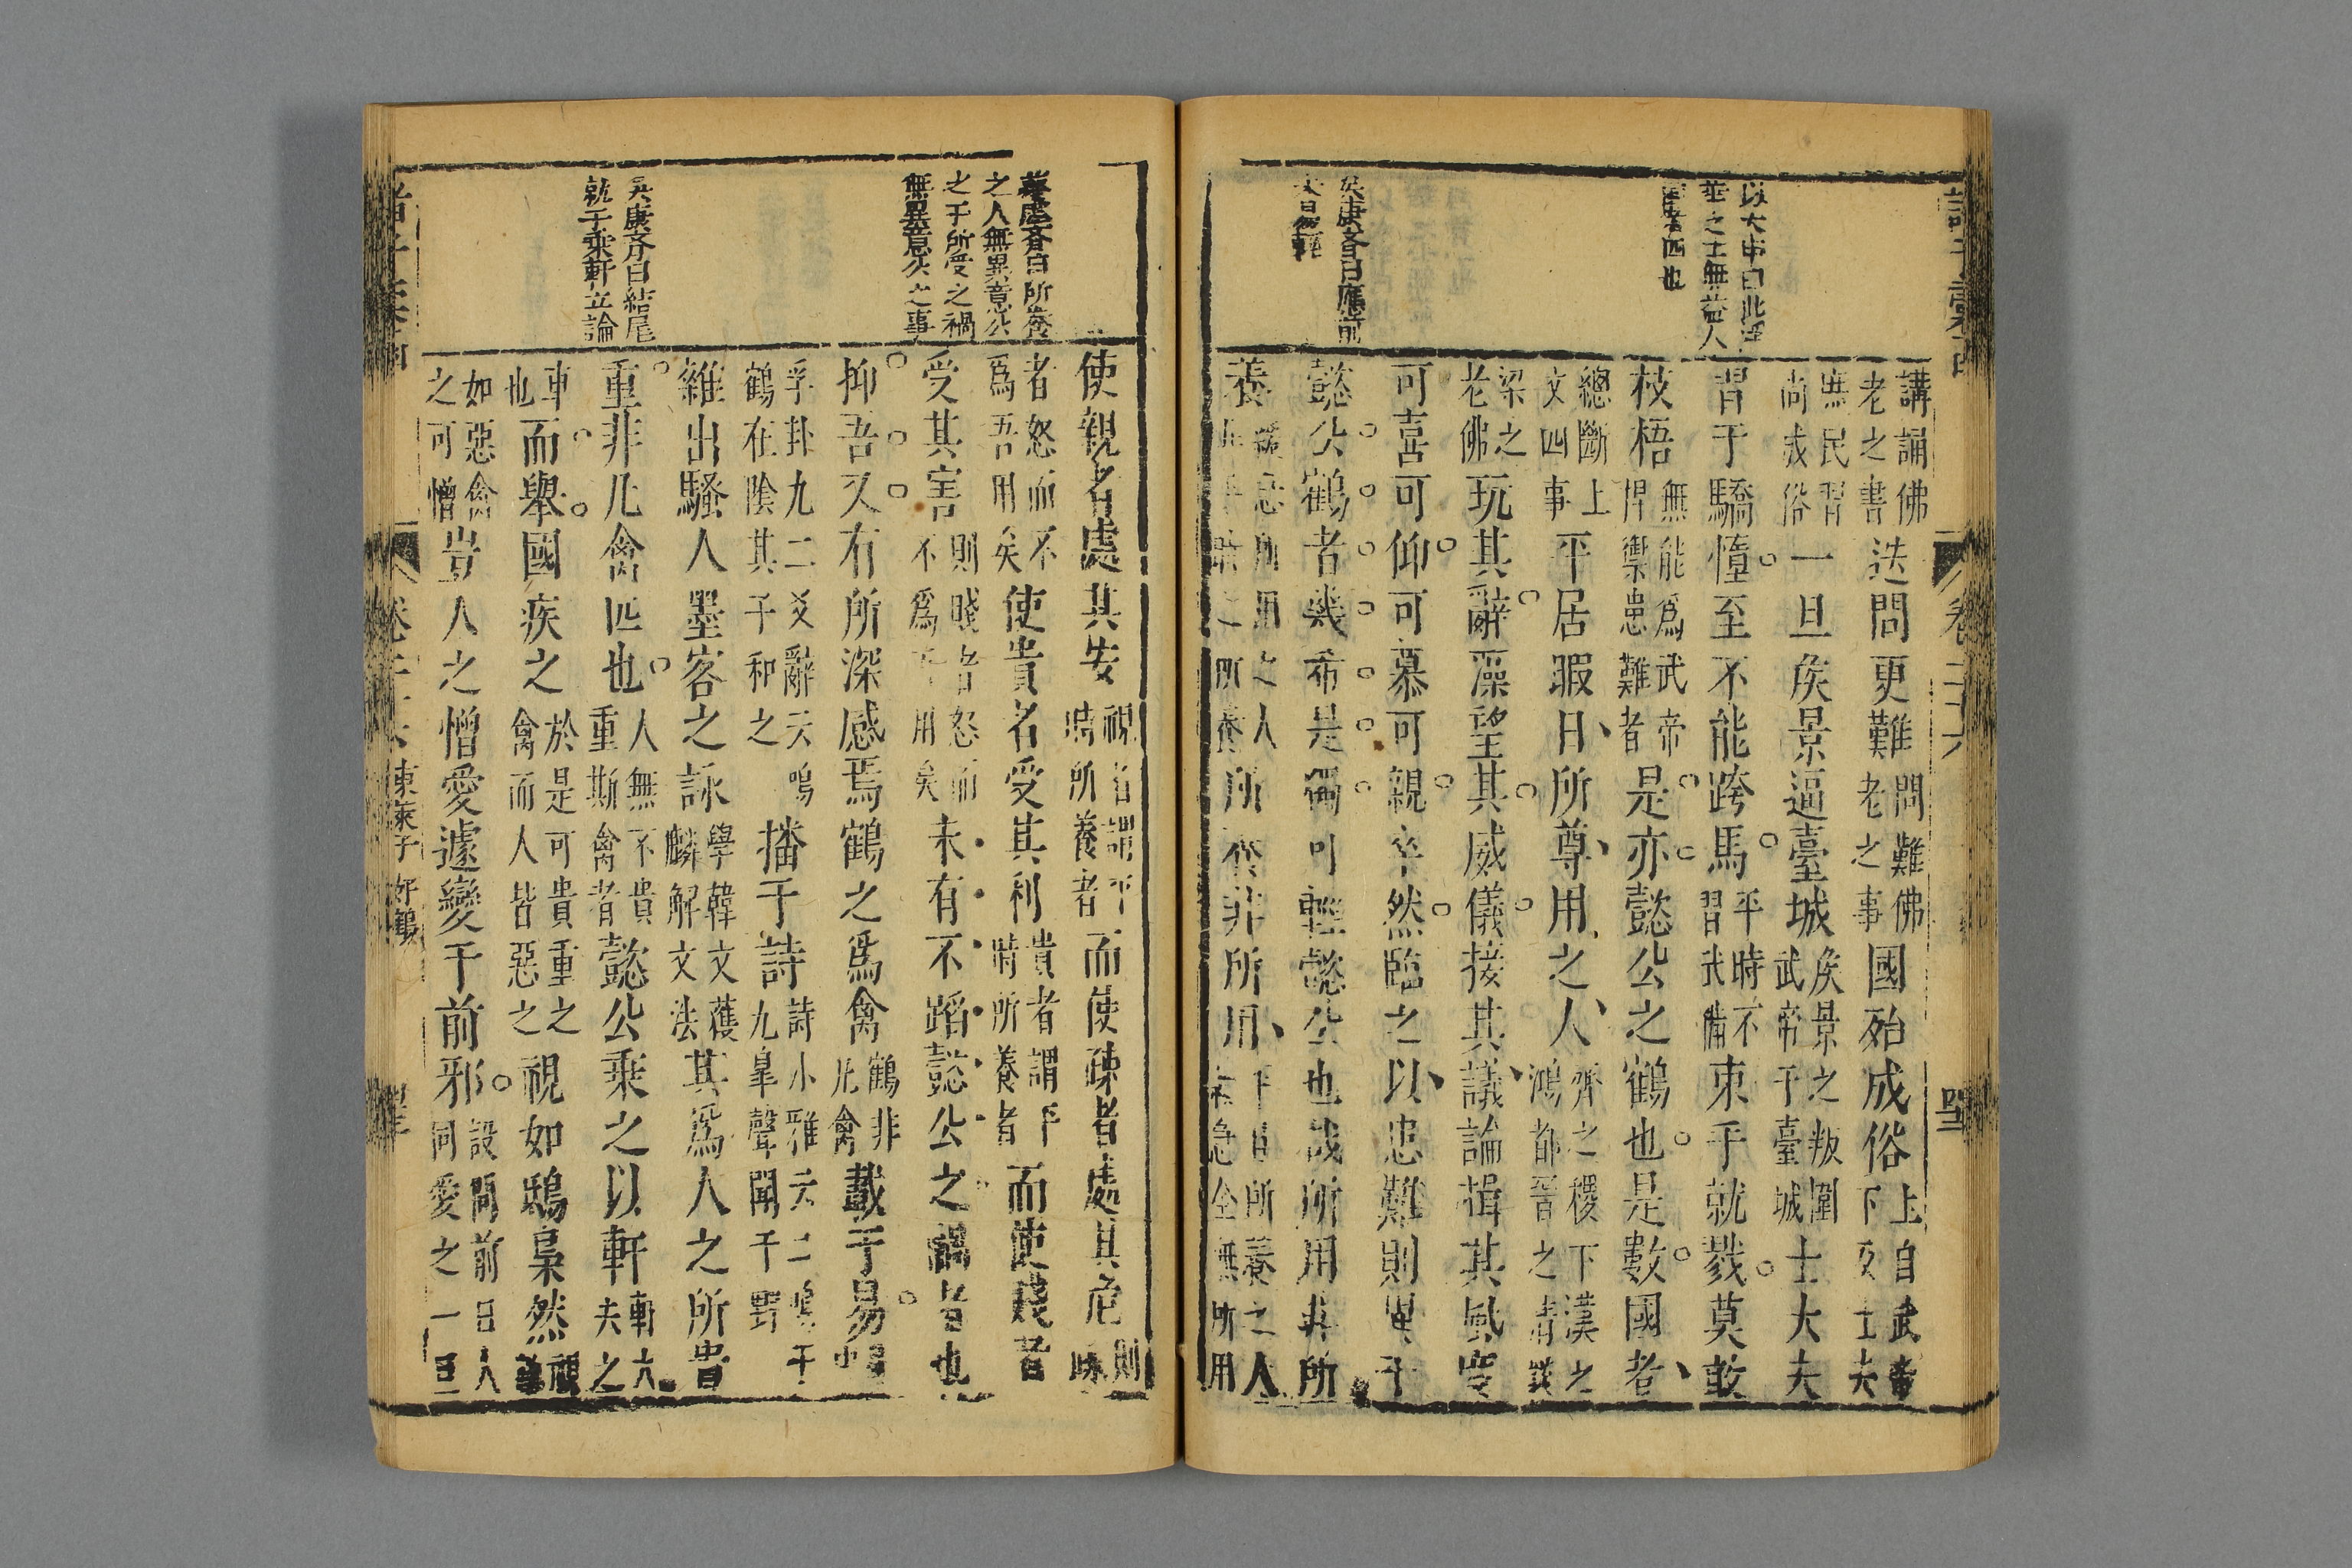 以大中曰此浮
華之士無益人
國者四也
吳庚斉曰應前
講誦佛
老之書迭問更難問難佛
老之事國殆成俗上自武帝
下及士夫
庶民習
尚成俗一旦侯景逼臺城侯景之叛圍
武帝于臺城士大夫
習于驕惰至不能跨馬平時不
習武備束手就戮莫敢
枝梧無能爲武帝
捍禦患難者是亦懿公之鶴也是數國者
總斷上
文四事平居暇日所尊用之人齊之稷下漢之
鴻都晉之清談
梁之
老佛玩其辭藻望其威儀接其議論揖其風度
可喜可仰可慕可親卒然臨之以患難則異于
懿公鶴者幾希是獨可輕懿公也哉所用非所
養緩急所用之人
非平時之所養所養非所用平日所養之人
緩急全無所用
卷二十六
吳庚斉曰所養
之人無異意公
之于所受之禍
無異意公之事
吳庚斉曰結尾
就于乘軒立論
使親者處其安視者謂平
時所養者而使疎者處其危則疎
者怒而不
爲吾用矣使貴名受其利貴者謂平
時所養者而使賤者
受其害則賤者怒而
不爲吾用矣未有不蹈懿公之禍者也
抑吾又有所深感焉鶴之爲禽鶴非
凡禽載于易易中
孚卦九二爻辭云鳴
鶴在陰其子和之播于詩詩小雅云二鳴于
九皐聲聞于野
雜出騷人墨客之詠學韓文獲
麟解文法其爲人之所貴
重非凡禽匹也人無不貴
重斯禽者懿公乘之以軒軒大
夫之
車
也而舉國疾之於是可貴重之
禽而人皆惡之視如鴟梟然視
如惡禽
之可憎豈人之憎愛遽變于前邪設問前日人
同愛之一旦
東萊子 好鶴